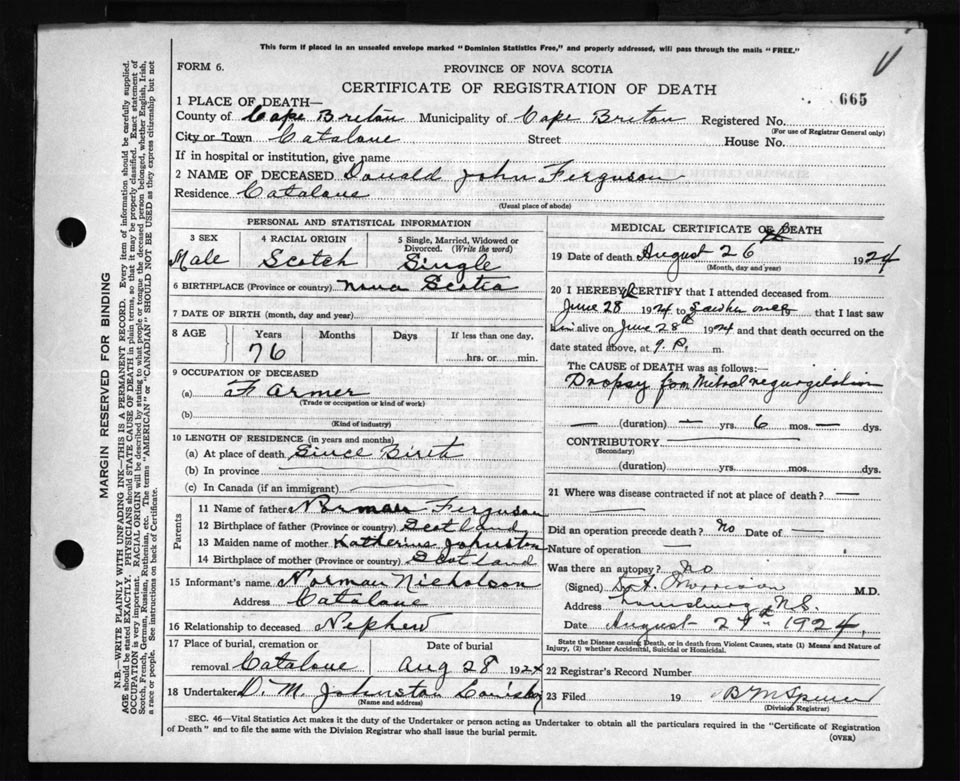 This form if placed in an unsealed envelope marked "Dominion Statistics Free," and properly addressed, will pass through the mails "FREE."
FORM 6.
PROVINCE OF NOVA SCOTIA
CERTIFICATE OF REGISTRATION OF DEATH
665
1 PLACE OF DEATH—
County of Cape Breton Municipality of Cape Breton Registered No.
(For use of Registrar General only)
City or Town Catalone Street House No.
If in hospital or institution, give name
2 NAME OF DECEASED Donald John Ferguson
Residence Catalone
(Usual place of abode)
PERSONAL AND STATISTICAL INFORMATION
3 SEX 4 RACIAL ORIGIN 5 Single, Married, Widowed or Divorced. (Write the word)
Male Scotch Single
6 BIRTHPLACE (Province or country) Nova Scotia
7 DATE OF BIRTH (month, day and year)
8 AGE Years Months Days If less than one day,
76 hrs. or min.
9 OCCUPATION OF DECEASED
(a) Farmer
(Trade or occupation or kind of work)
(b)
(Kind of industry)
10 LENGTH OF RESIDENCE (in years and months)
(a) At place of death Since Birth
(b) In province
(c) In Canada (if an immigrant)
Parents
11 Name of father Norman Ferguson
12 Birthplace of father (Province or country) Scotland
13 Maiden name of mother Katherine Johnston
14 Birthplace of mother (Province or country) Scotland
15 Informant's name Norman Nicholson
Address Catalone
16 Relationship to deceased Nephew
17 Place of burial, cremation or Date of burial
removal Catalone Aug 28 1924
18 Undertaker D. M. Johnston Louisbg
(Name and address)
MEDICAL CERTIFICATE OF DEATH
19 Date of death August 26 1924
(Month, day and year)
20 I HEREBY CERTIFY that I attended deceased from
June 28 1924 to Saw him once 19 that I last saw
him alive on June 28th 1924 and that death occurred on the
date stated above, at 9. P. m.
The CAUSE of DEATH was as follows:—
Dropsy from Mitral regurgitation
— (duration) — yrs. 6 mos. — dys.
CONTRIBUTORY
(Secondary)
(duration) yrs. mos. dys.
21 Where was disease contracted if not at place of death? —
Did an operation precede death? No Date of —
Nature of operation —
Was there an autopsy? No
(Signed) D. A. Morrison M.D.
Address Louisburg N.S.
Date August 27th 1924,
State the Disease causing Death, or in death from Violent Causes, state (1) Means and Nature of
Injury, (2) whether Accidental, Suicidal or Homicidal.
22 Registrar's Record Number
23 Filed 19 B M Spencer
(Division Registrar)
SEC. 46—Vital Statistics Act makes it the duty of the Undertaker or person acting as Undertaker to obtain all the particulars required in the "Certificate of Registration
of Death" and to file the same with the Division Registrar who shall issue the burial permit.
(OVER)
MARGIN RESERVED FOR BINDING
N.B.—WRITE PLAINLY WITH UNFADING INK—THIS IS A PERMANENT RECORD. Every item of information should be carefully supplied.
AGE should be stated EXACTLY. PHYSICIANS should STATE CAUSE OF DEATH in plain terms, so that it may be properly classified. Exact statement of
OCCUPATION is very important. RACIAL ORIGIN will be described by stating to what people or tongue the deceased person belonged, whether English, Irish,
Scotch, French, German, Russian, Ruthenian, etc. The terms "AMERICAN" or "CANADIAN" SHOULD NOT BE USED as they express citizenship but not
a race or people. See instructions on back of Certificate.